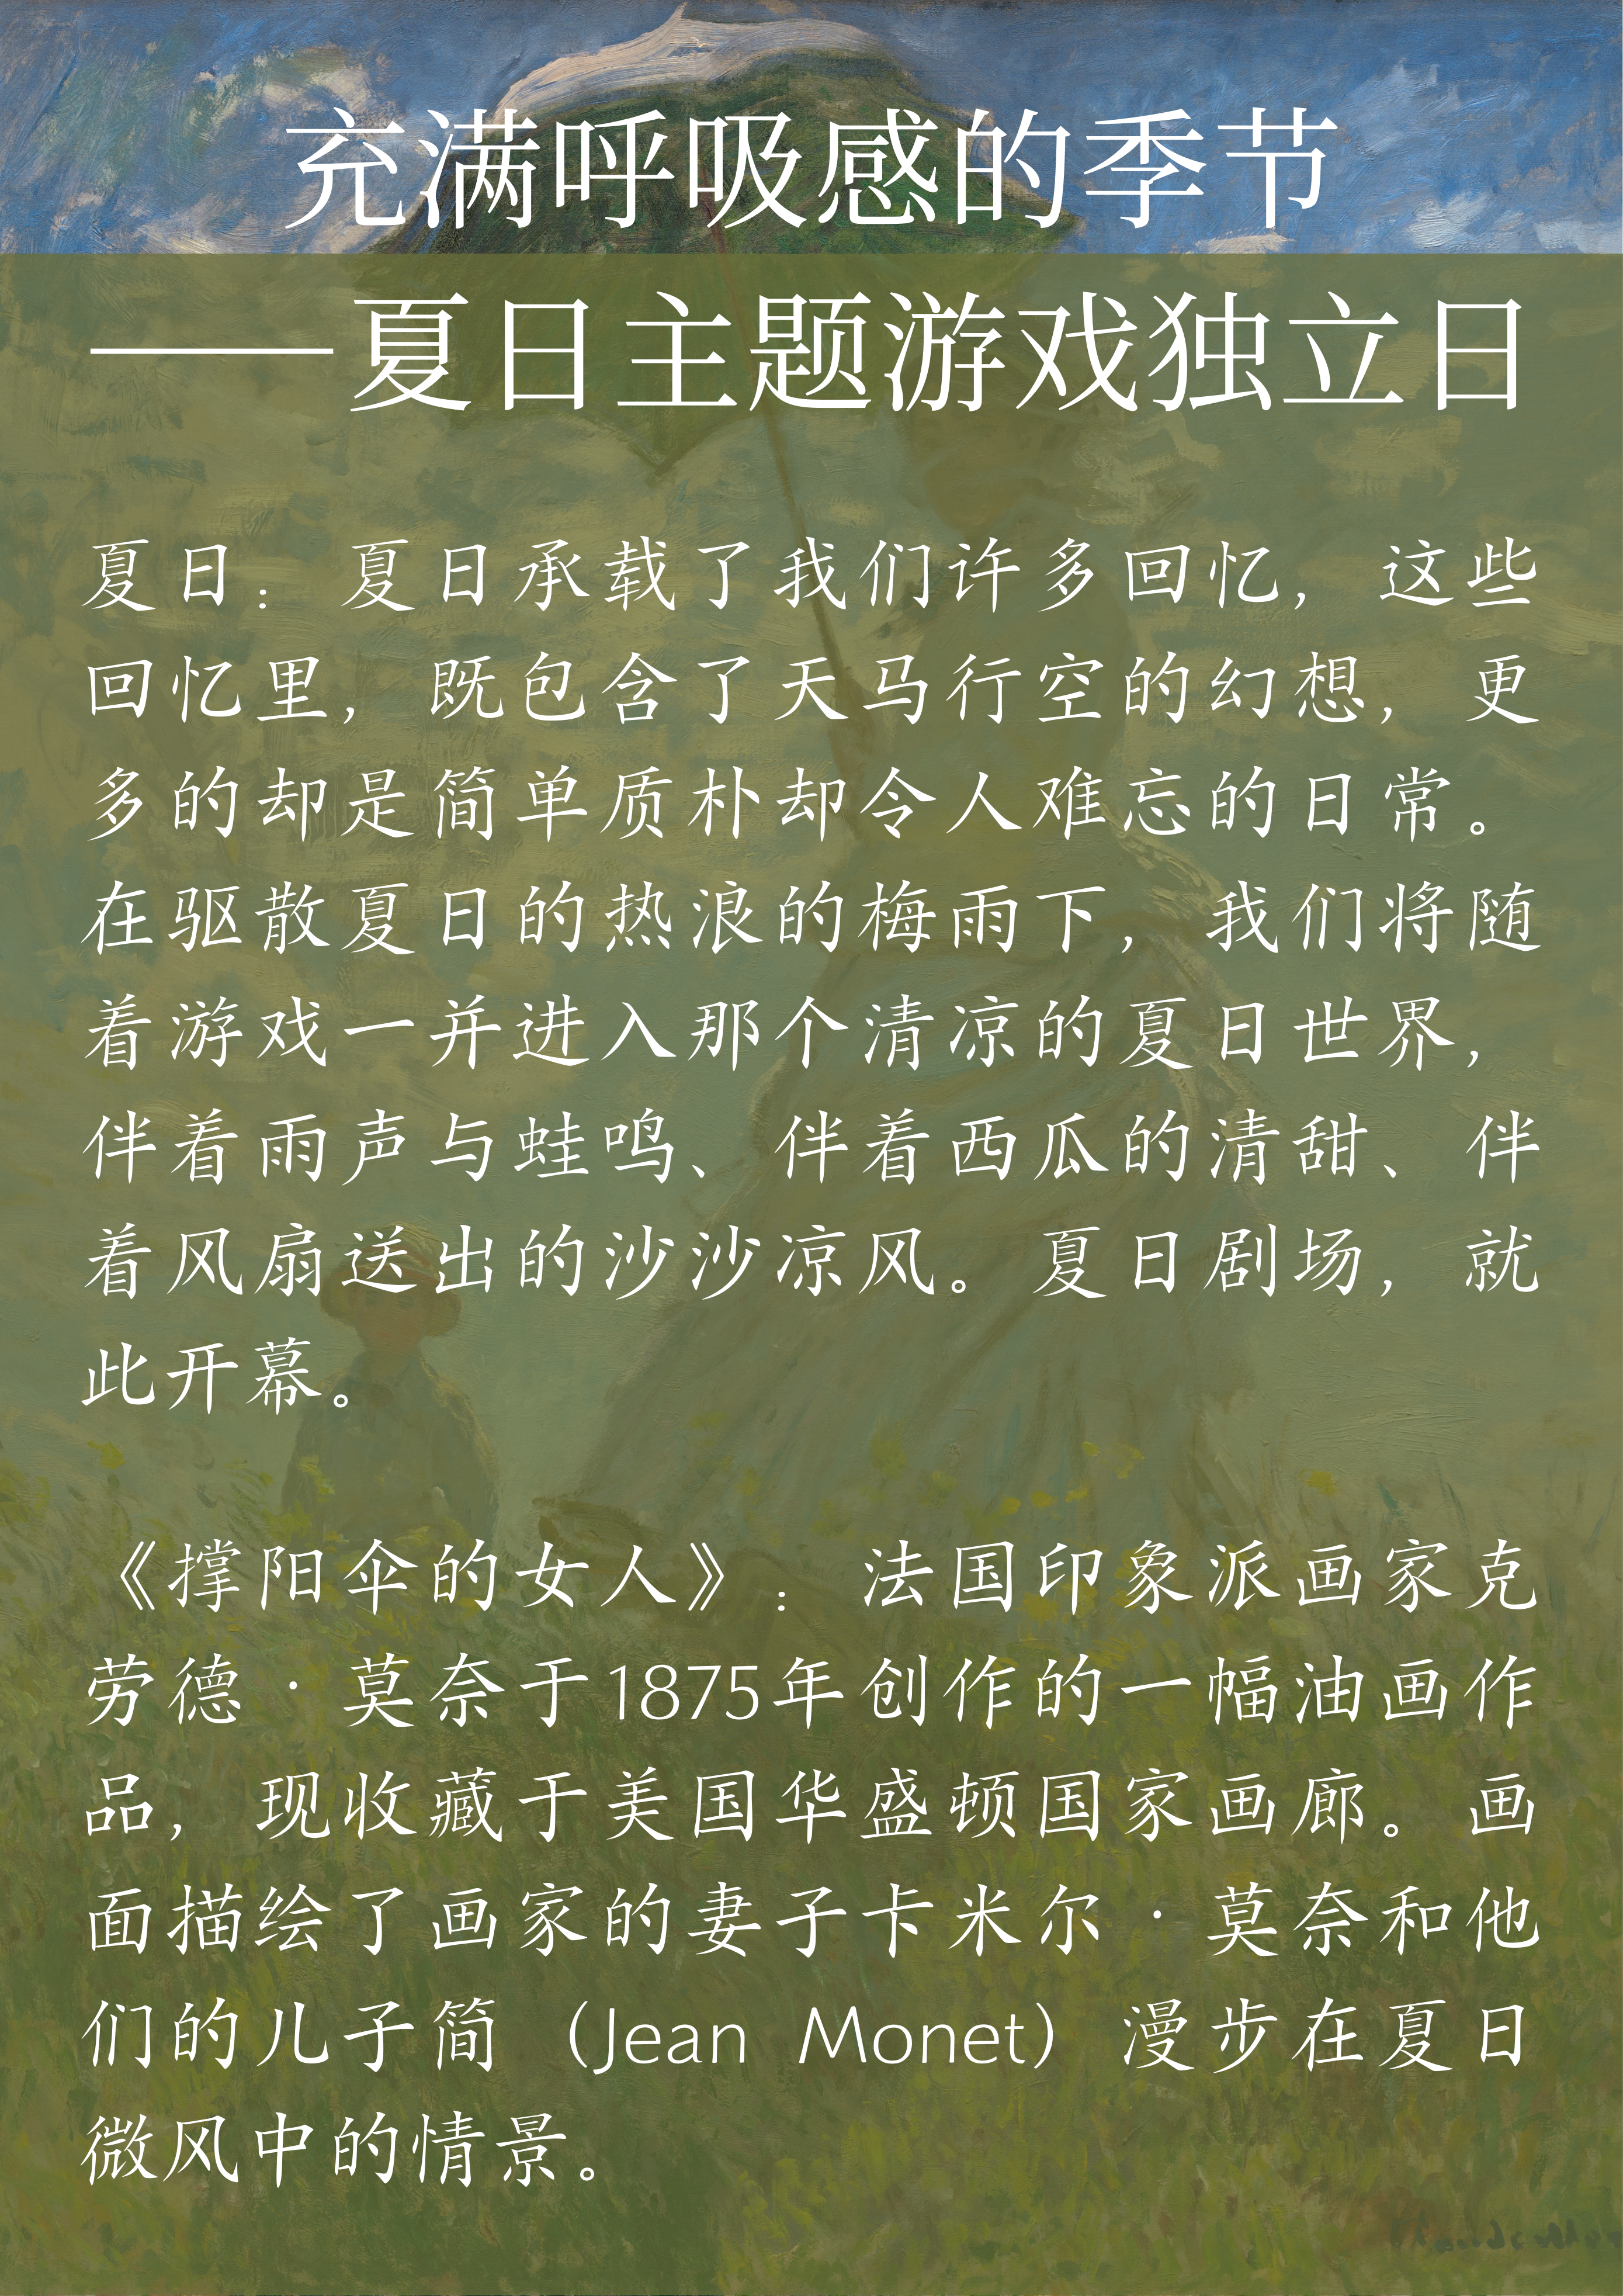 充满呼吸感的季节
——夏日主题游戏独立日
夏日：夏日承载了我们许多回忆，这些
回忆里，既包含了天马行空的幻想，更
多的却是简单质朴却令人难忘的日常。
在驱散夏日的热浪的梅雨下，我们将随
着游戏一并进入那个清凉的夏日世界，
伴着雨声与蛙鸣、伴着西瓜的清甜、伴
着风扇送出的沙沙凉风。夏日剧场，就
此开幕。
《撑阳伞的女人》：法国印象派画家克
劳德·莫奈于1875年创作的一幅油画作
品，现收藏于美国华盛顿国家画廊。画
面描绘了画家的妻子卡米尔·莫奈和他
们的儿子简（Jean Monet）漫步在夏日
微风中的情景。